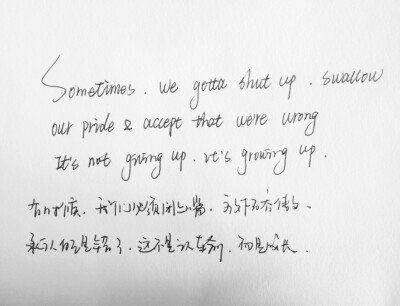 Sometimes. we gotta shut up. swallow
our pride & accept that we're wrong
It's not giving up. it's growing up.
有时候、我们必须闭上嘴、放下骄傲、
承认自己是错了、这不是认输、而是成长.